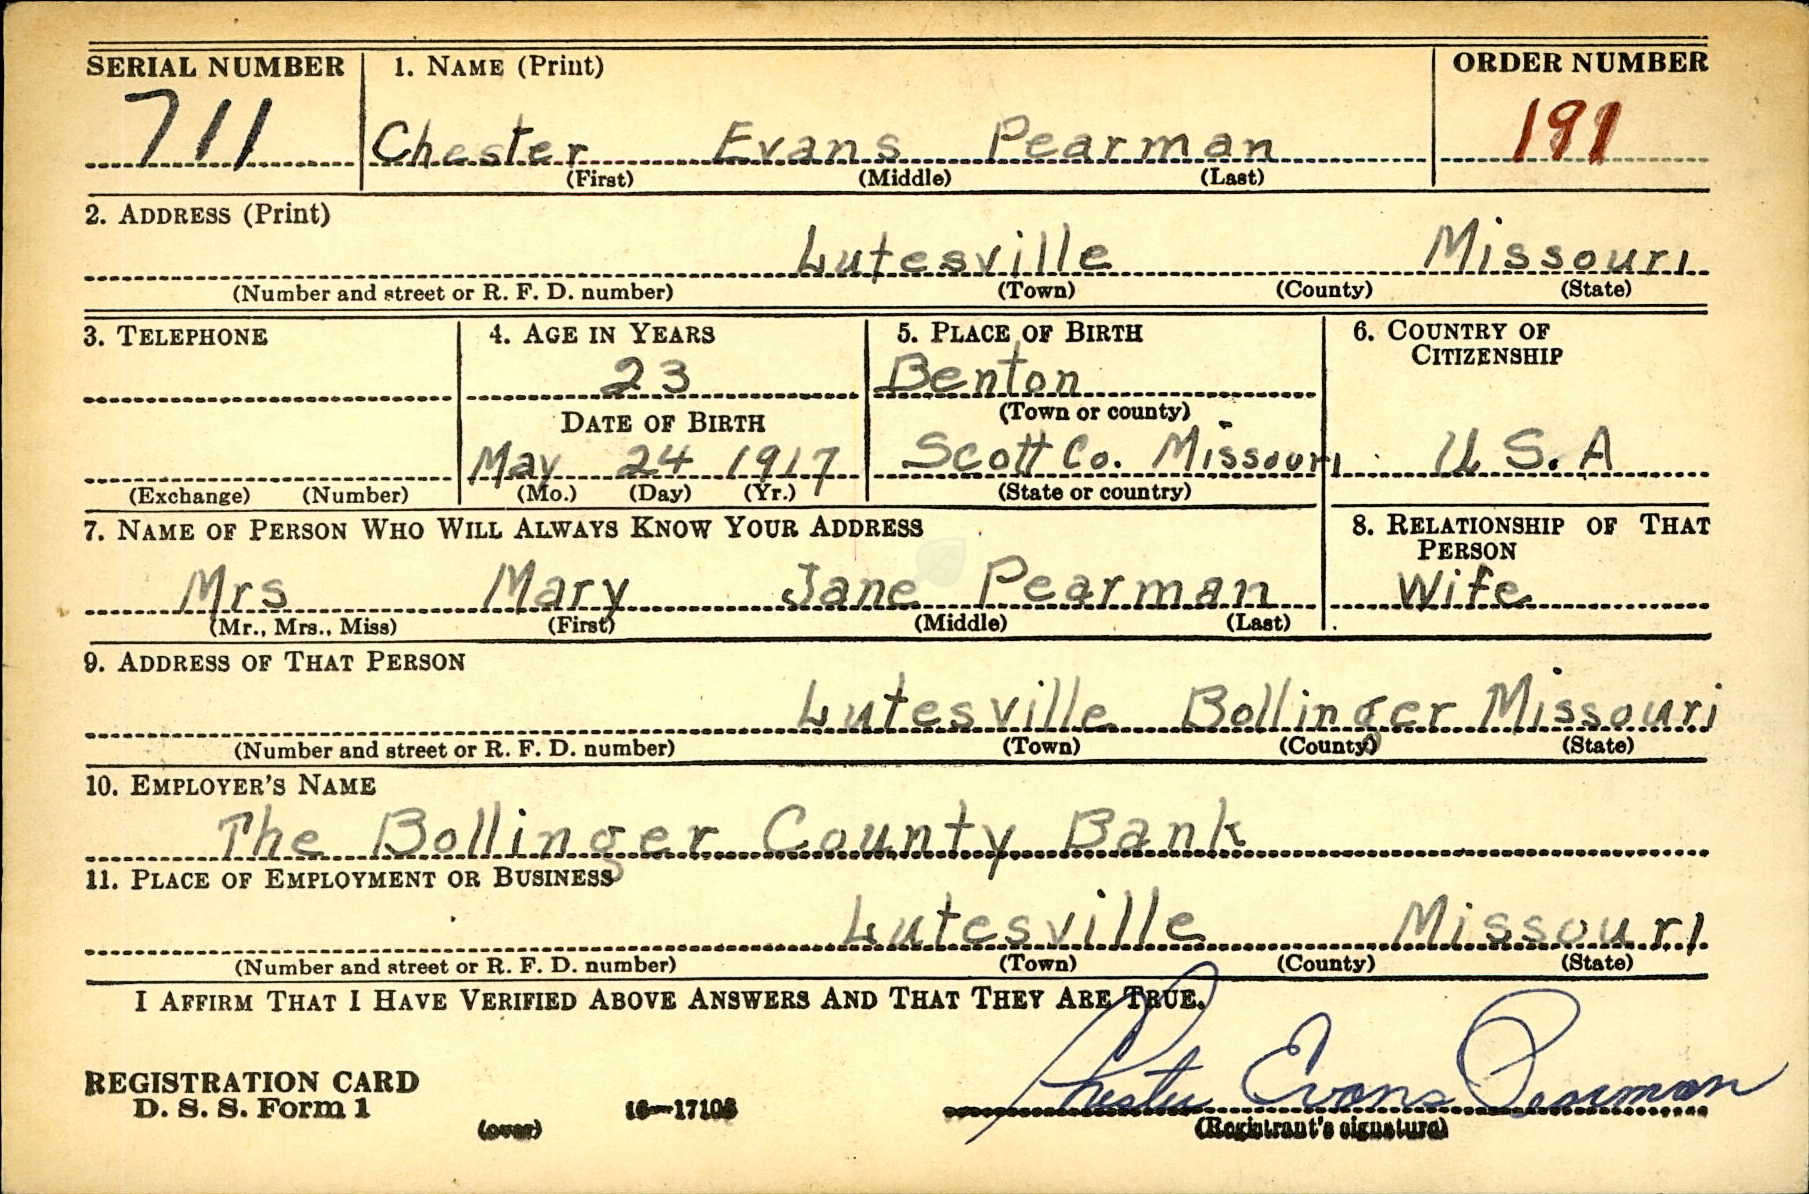 SERIAL NUMBER 1. NAME (Print) ORDER NUMBER
711 Chester Evans Pearman 191
(First) (Middle) (Last)
2. ADDRESS (Print)
Lutesville Missouri
(Number and street or R. F. D. number) (Town) (County) (State)
3. TELEPHONE 4. AGE IN YEARS 5. PLACE OF BIRTH 6. COUNTRY OF
CITIZENSHIP
23 Benton
DATE OF BIRTH (Town or county)
May 24 1917 Scott Co. Missouri U. S. A
(Exchange) (Number) (Mo.) (Day) (Yr.) (State or country)
7. NAME OF PERSON WHO WILL ALWAYS KNOW YOUR ADDRESS 8. RELATIONSHIP OF THAT
PERSON
Mrs Mary Jane Pearman Wife
(Mr., Mrs., Miss) (First) (Middle) (Last)
9. ADDRESS OF THAT PERSON
Lutesville Bollinger Missouri
(Number and street or R. F. D. number) (Town) (County) (State)
10. EMPLOYER'S NAME
The Bollinger County Bank
11. PLACE OF EMPLOYMENT OR BUSINESS
Lutesville Missouri
(Number and street or R. F. D. number) (Town) (County) (State)
I AFFIRM THAT I HAVE VERIFIED ABOVE ANSWERS AND THAT THEY ARE TRUE.
REGISTRATION CARD Chester Evans Pearman
D. S. S. Form 1 (over) 16—17105 (Registrant's signature)